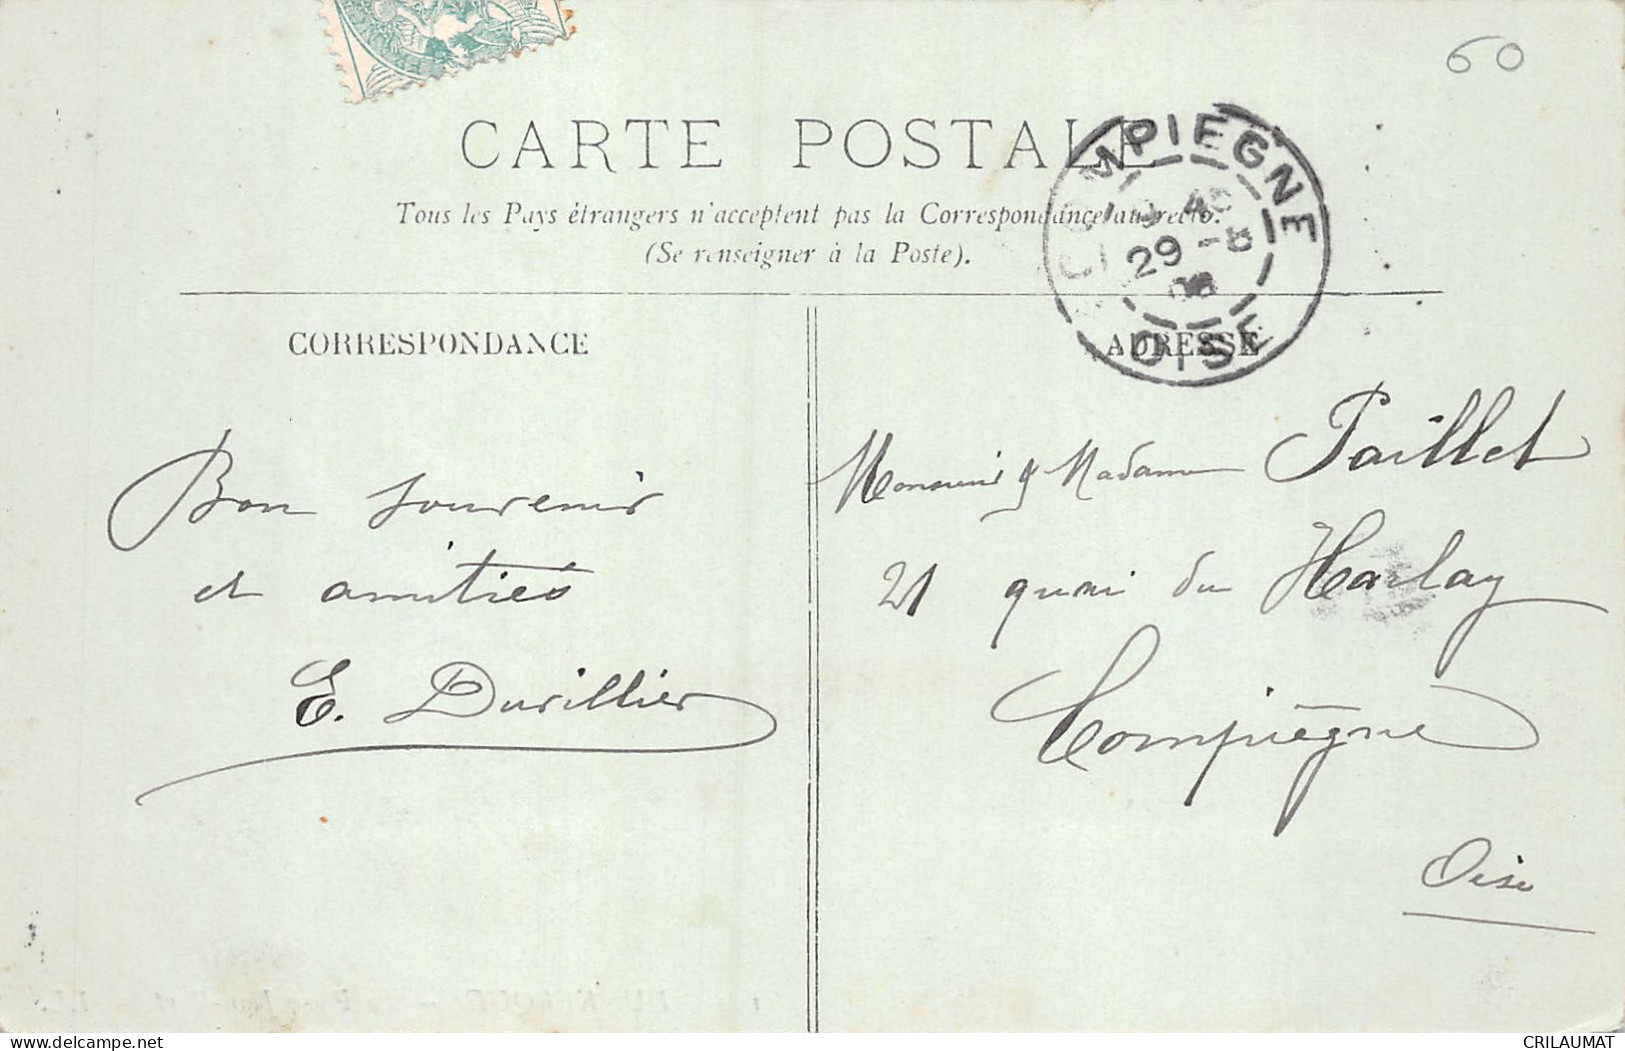 60
CARTE POSTALE
Tous les Pays étrangers n'acceptent pas la Correspondance au recto.
(Se renseigner à la Poste).
COMPIEGNE
29 -8
08
OISE
CORRESPONDANCE
Bon souvenir
et amitiés
E. Duvillier
ADRESSE
Monsieur & Madame Paillet
21 quai du Harlay
Compiègne
Oise
CRILAUMAT